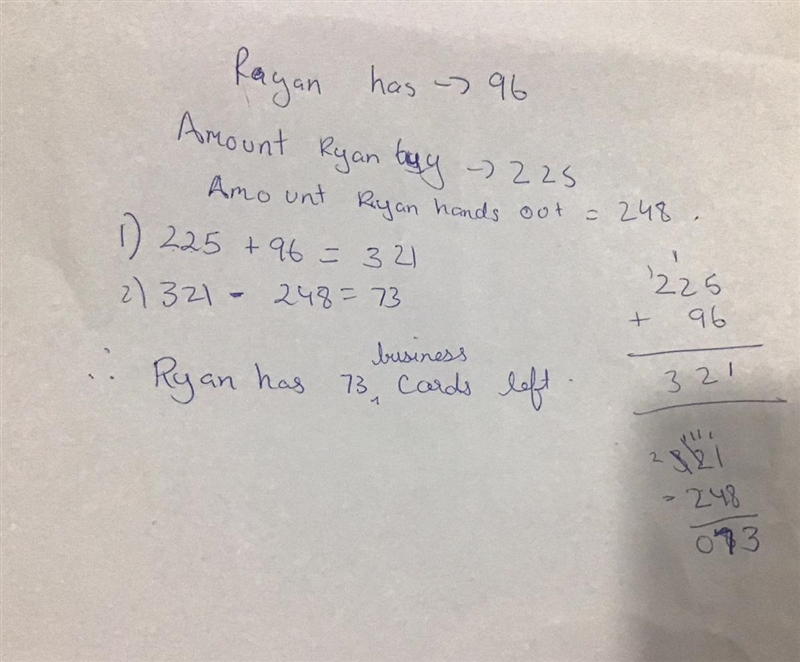 Rayan has → 96
Amount Ryan buy → 225
Amount Ryan hands out = 248.
1) 225 + 96 = 321
2) 321 - 248 = 73
∴ Ryan has 73 business cards left.
1 1
225
+ 96
321
2 11 1
321
- 248
073